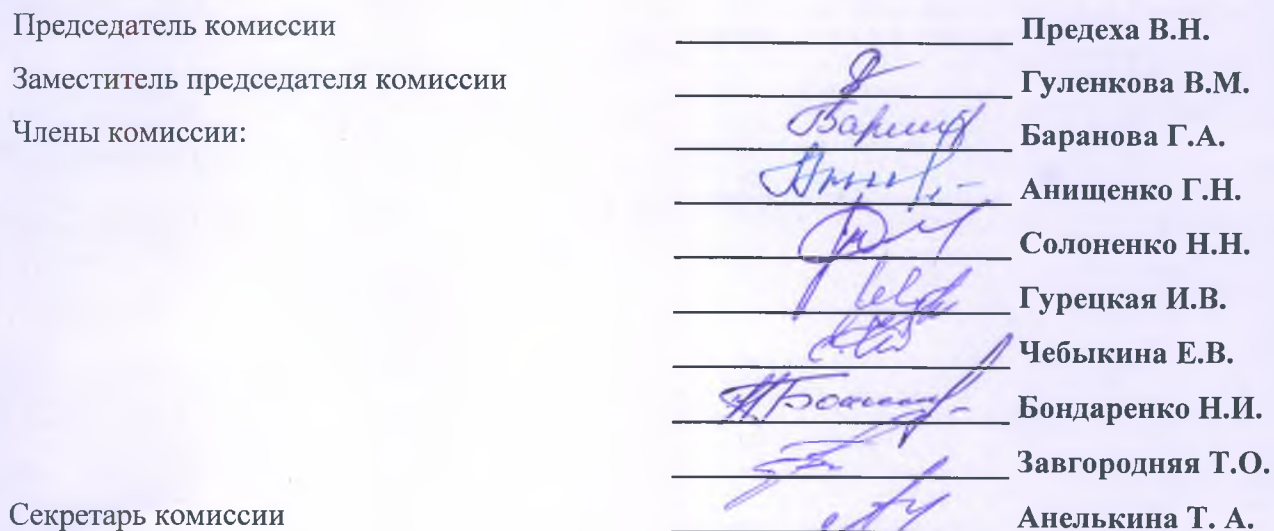 Председатель комиссии Предеха В.Н.
Заместитель председателя комиссии Гуленкова В.М.
Члены комиссии: Баранова Г.А.
Анищенко Г.Н.
Солоненко Н.Н.
Гурецкая И.В.
Чебыкина Е.В.
Бондаренко Н.И.
Завгородняя Т.О.
Секретарь комиссии Анелькина Т. А.